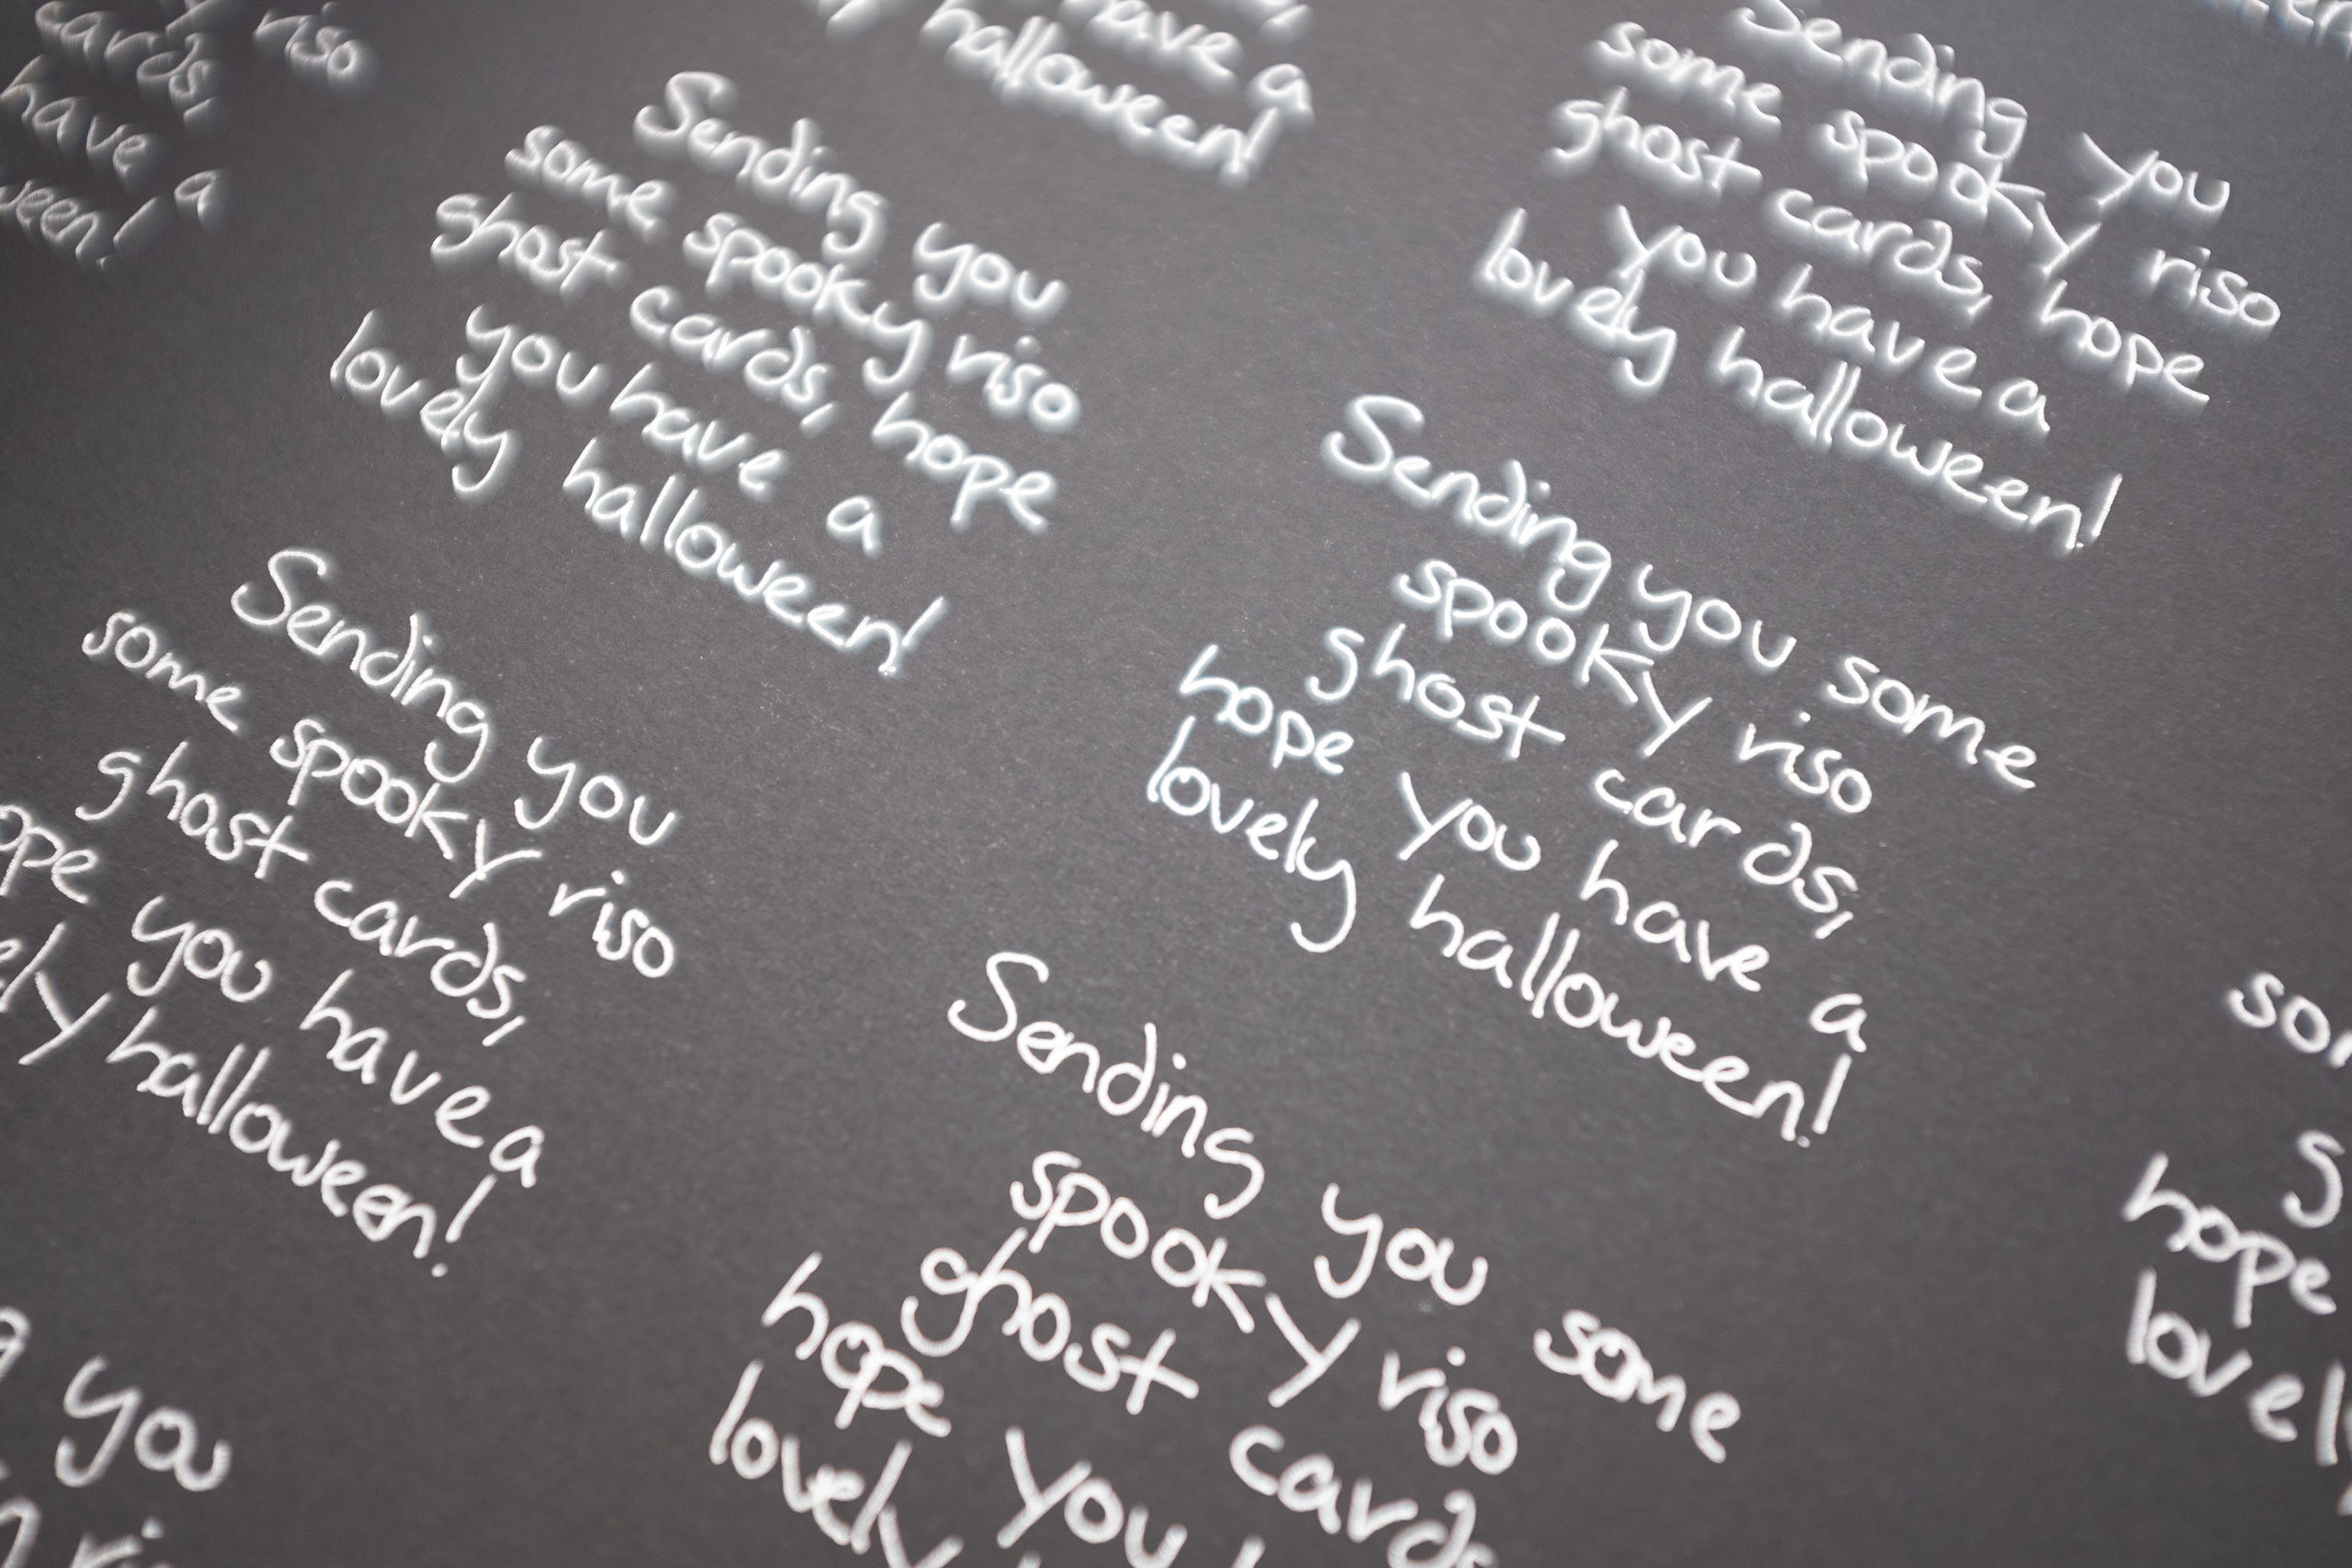 cards, riso
have a
ween!
have a
halloween!
Sending you
some spooky riso
ghost cards, hope
you have a
lovely halloween!
Sending you
some spooky riso
ghost cards, hope
you have a
lovely halloween!
Sending you
some spooky riso
ghost cards,
ope you have a
ely halloween!
Sending you some
spooky riso
ghost cards,
hope you have a
lovely halloween!
Sending you some
spooky riso
ghost cards
hope you h
lovely
you
som
g
hope
lovel